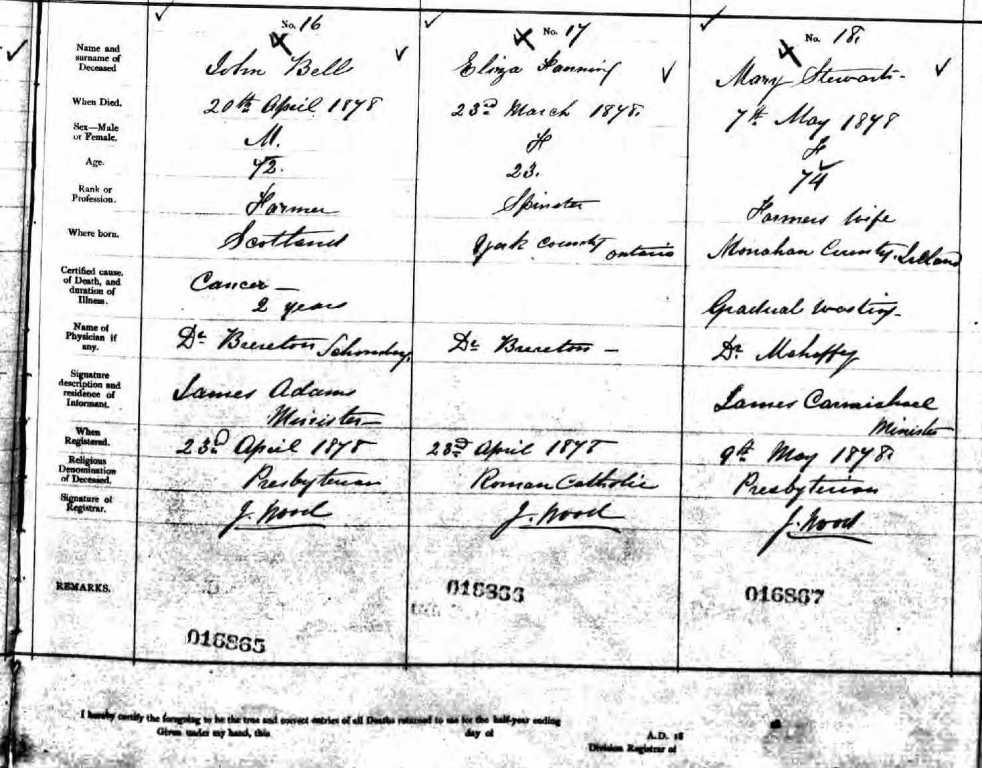 No. 16 No. 17 No. 18.
Name and surname of Deceased John Bell Eliza Fanning Mary Stewart
When Died. 20th April 1878 23rd March 1878. 7th May 1878
Sex—Male or Female. M. F F
Age. 72. 23. 74
Rank or Profession. Farmer Spinster Farmers Wife
Where born. Scotland York County Ontario Monahan County, Ireland
Certified cause of Death, and duration of Illness. Cancer — 2 years Gradual wasting
Name of Physician if any. Dr Brereton Schomberg. Dr Brereton — Dr Mahaffy
Signature description and residence of Informant. James Adams Minister James Carmichael Minister
When Registered. 23rd April 1878 23rd April 1878 9th May 1878.
Religious Denomination of Deceased. Presbyterian Roman Catholic Presbyterian
Signature of Registrar. J. Wood J. Wood J. Wood
REMARKS. 016865 016866 016867
I hereby certify the foregoing to be the true and correct entries of all Deaths returned to me for the half-year ending
Given under my hand, this day of A.D. 18
Division Registrar of